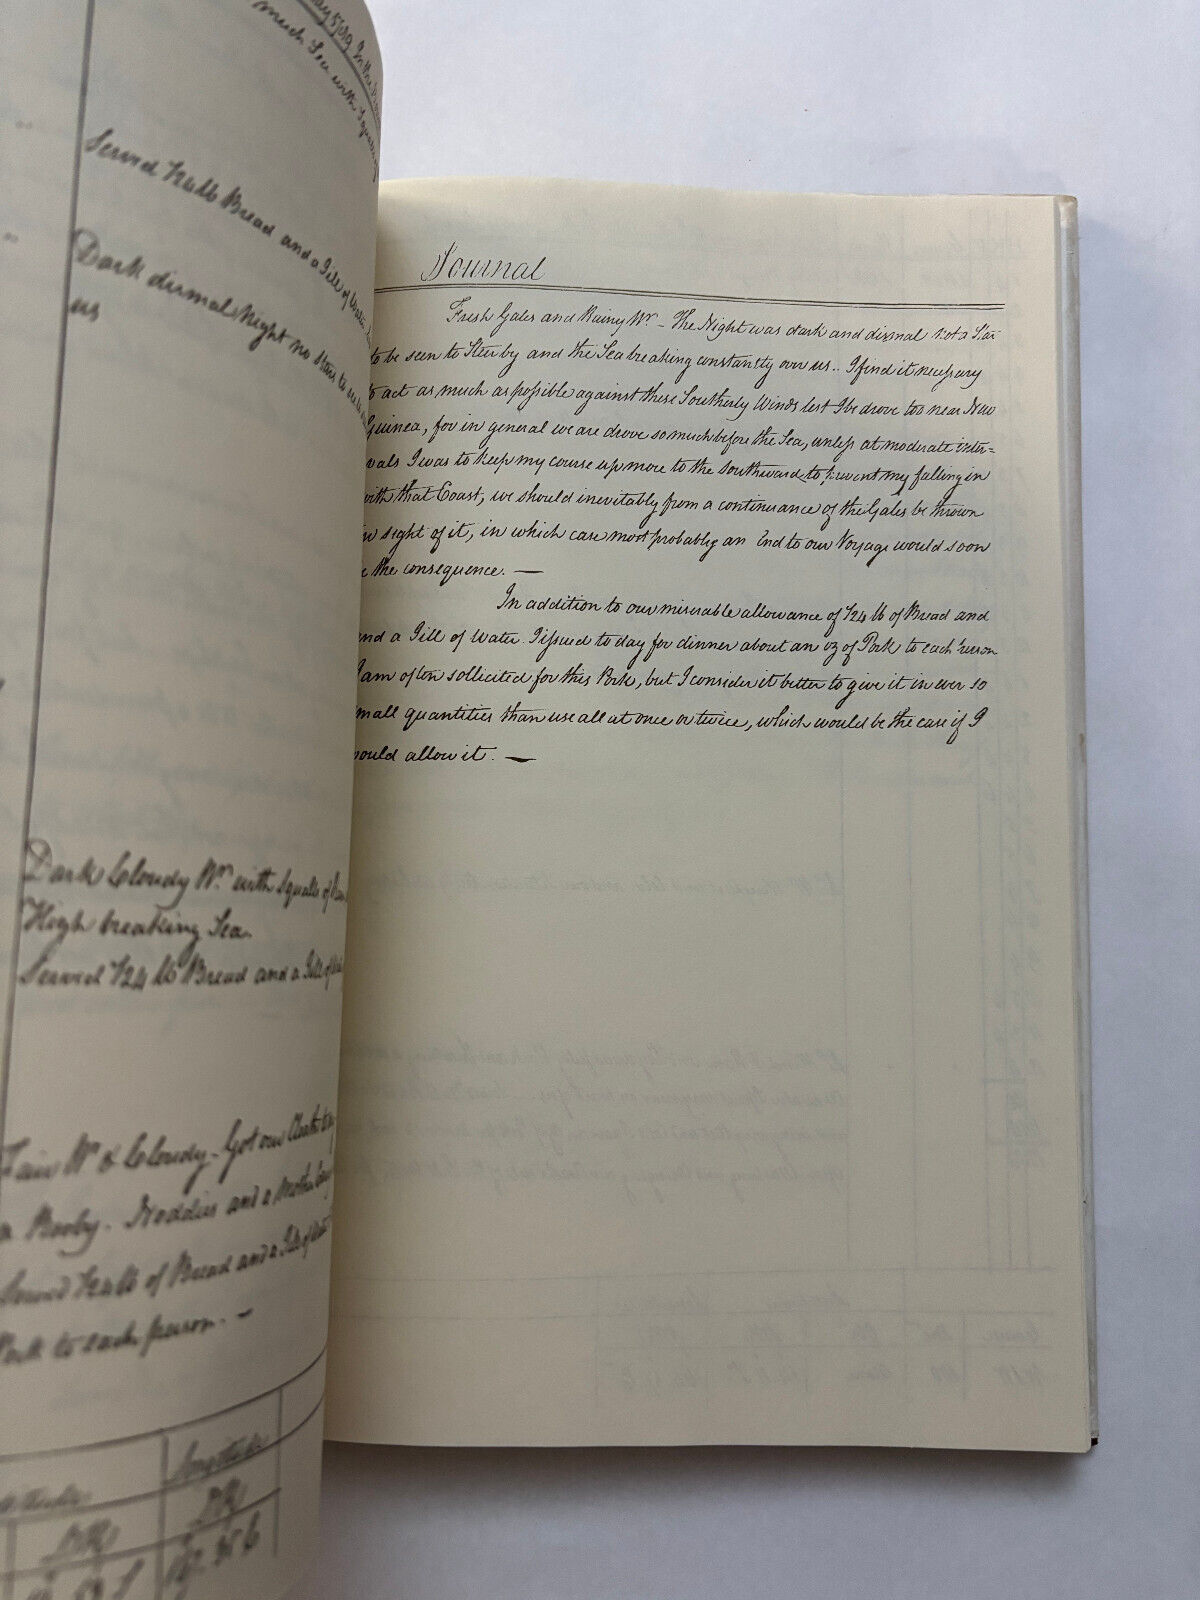 much Sea with Squally
Served 1/24 lb Bread and a Gill of Water
Dark dismal Night no Stars to
us
Dark Cloudy Wr. with Squalls of
High breaking Sea
Served 1/24 lb Bread and a Gill of
Fair Wr. & Cloudy - Got our
a Booby - Noddies and a
Served 1/24 lb of Bread and a Gill of
Pork to each person. -
Longitude
DR
DR
Journal
Fresh Gales and Rainy Wr. - The Night was dark and dismal not a Star
to be seen to Steer by and the Sea breaking constantly over us.. I find it necessary
to act as much as possible against these Southerly Winds lest I be drove too near New
Guinea, for in general we are drove so much before the Sea, unless at moderate inter=
vals I was to keep my course up more to the southward to prevent my falling in
with that Coast, we should inevitably from a continuance of the Gales be thrown
in sight of it, in which case most probably an End to our Voyage would soon
be the consequence. —
In addition to our miserable allowance of 1/24 lb of Bread and
and a Gill of Water. I issued to day for dinner about an oz of Pork to each Person
I am often sollicited for this Pork, but I consider it better to give it in ever so
small quantities than use all at once or twice, which would be the case if I
would allow it. —